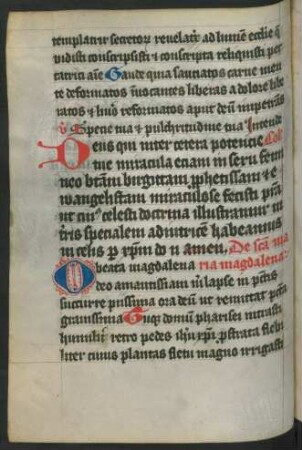 templatrix secretorum revelatrix ad lumen ecclie q
vidisti conscripsisti et conscripta reliquisti pec
catrici aie Gaude quia sauciatos carne men
te deformatos invocantes liberas a dolore libe
ratos et huius reformatos aput deum impetrans
v Specie tua et pulchritudine tua Intende
Deus qui inter cetera potencie Coll
tue miracula eciam in sexu femi
neo beatam birgittam prophetissam et e
wangelistam miraculose fecisti presta
ut cuius celesti doctrina illustramur in
tris specialem adiutricem habeamus
in celis p xpm do n amen. De sca ma
O beata magdalena ria magdalena
deo amantissam in lapse in pctis
sucurre piissima ora deum ut remittat pccta
gravissima Suqz domum pharisei intrasti
humilis retro pedes ihu xpi prostrata flebi
liter cuius plantas fletu magno irrigasti